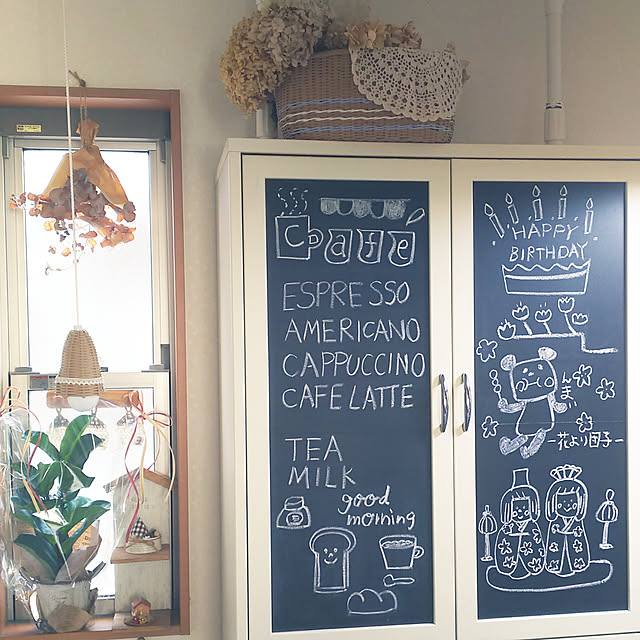 Cafe
ESPRESSO
AMERICANO
CAPPUCCINO
CAFE LATTE
TEA
MILK
good
morning
HAPPY
BIRTHDAY
んまい
ー花より団子ー